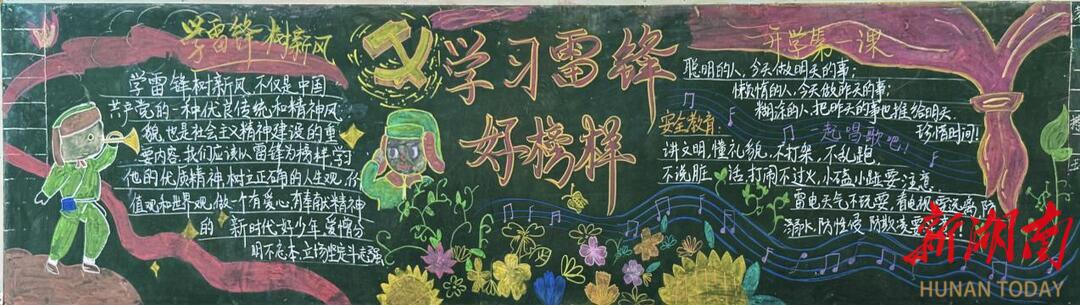 学雷锋 树新风
学雷锋树新风,不仅是中国
共产党的一种优良传统和精神风
貌,也是社会主义精神建设的重
要内容.我们应该以雷锋为榜样,学习
他的优质精神,树立正确的人生观,价
值观和世界观,做一个有爱心,有奉献精神
的 新时代好少年 爱憎分
明不忘本,立场坚定斗志强
学习雷锋
好榜样
开学第一课
聪明的人,今天做明天的事;
懒惰的人,今天做昨天的事;
糊涂的人,把昨天的事也推给明天.
珍惜时间!
一起唱歌吧!
安全教育:
讲文明,懂礼貌,不打架,不乱跑.
不说脏 话,打闹不过火,小磕小碰要注意.
雷电天气不玩耍,看电视要远离,防
溺水,防性侵 防欺凌要
新湖南
HUNAN TODAY